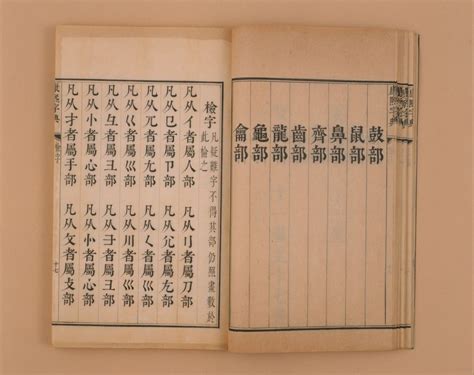 鼓部
鼠部
鼻部
齊部
齒部
龍部
龜部
龠部
檢字 凡疑難字不得其部仍照畫數於此檢之
凡从亻者屬人部 凡从刂者屬刀部
凡从㔾者屬卩部 凡从尣者屬尢部
凡从兀者屬尢部 凡从𡿨者屬巛部
凡从巜者屬巛部 凡从川者屬巛部
凡从彑者屬彐部 凡从彐者屬彐部
凡从忄者屬心部 凡从㣺者屬心部
凡从扌者屬手部 凡从攵者屬攴部
康熙字典 檢字